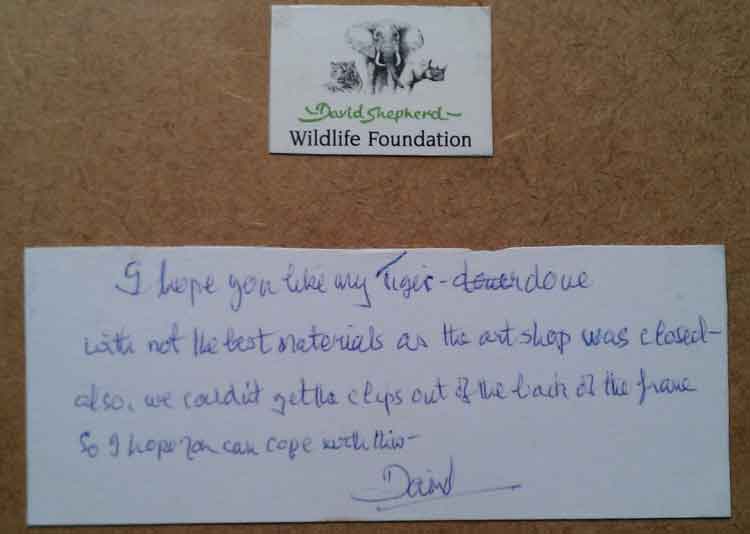 David Shepherd
Wildlife Foundation
I hope you like my Tiger - done
with not the best materials as the art shop was closed -
also, we couldn't get the clips out of the back of the frame
So I hope you can cope with this -
David